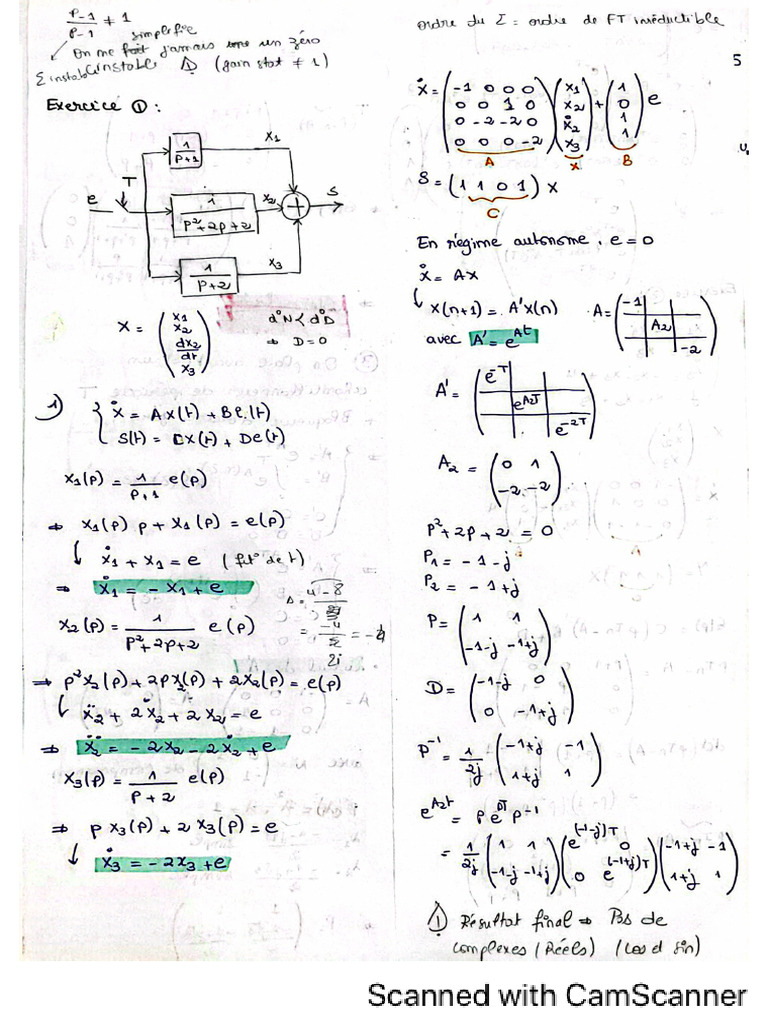 P-1/P-1 ≠ 1
simplifie
On ne fait jamais un zéro
Σ instable instable ⚠ (gain stat ≠ 1)
Exercice ① :
e T 1/(P+1) x1
1/(P²+2P+2) x2 + S
1/(P+2) x3
X = (x1 x2 dx2/dt x3)
d°N < d°D
⇒ D=0
1) { Ẋ = AX(t) + Be(t)
S(t) = CX(t) + De(t)
x1(p) = 1/(P+1) e(p)
⇒ x1(p) p + x1(p) = e(p)
↓ ẋ1 + x1 = e (fct° de t)
⇒ ẋ1 = -x1 + e
x2(p) = 1/(P²+2P+2) e(p)
Δ = 4-8
2j
⇒ p²x2(p) + 2px2(p) + 2x2(p) = e(p)
↓ ẍ2 + 2ẋ2 + 2x2 = e
⇒ ẍ2 = -2x2 - 2ẋ2 + e
x3(p) = 1/(P+2) e(p)
⇒ p x3(p) + 2x3(p) = e
↓ ẋ3 = -2x3 + e
ordre du Σ = ordre de FT irréductible
5
Ẋ = (-1 0 0 0
0 0 1 0
0 -2 -2 0
0 0 0 -2) (x1 x2 ẋ2 x3) + (1 0 1 1) e
A X B
S = (1 1 0 1) X
C
En régime autonome, e = 0
Ẋ = AX
↓ X(n+1) = A'X(n) A = (-1 A2 -2)
avec A' = e^At
A' = (e^-T e^A2T e^-2T)
A2 = (0 1
-2 -2)
P²+2P+2 = 0
P1 = -1-j
P2 = -1+j
P = (1 1
-1-j -1+j)
D = (-1-j 0
0 -1+j)
P^-1 = 1/2j (-1+j -1
1+j 1)
e^A2t = P e^DT P^-1
= 1/2j (1 1
-1-j -1+j) (e^(-1-j)T 0
0 e^(-1+j)T) (-1+j -1
1+j 1)
⚠ Résultat final ⇒ Pas de
complexes (Réels) (cos et sin)
Scanned with CamScanner